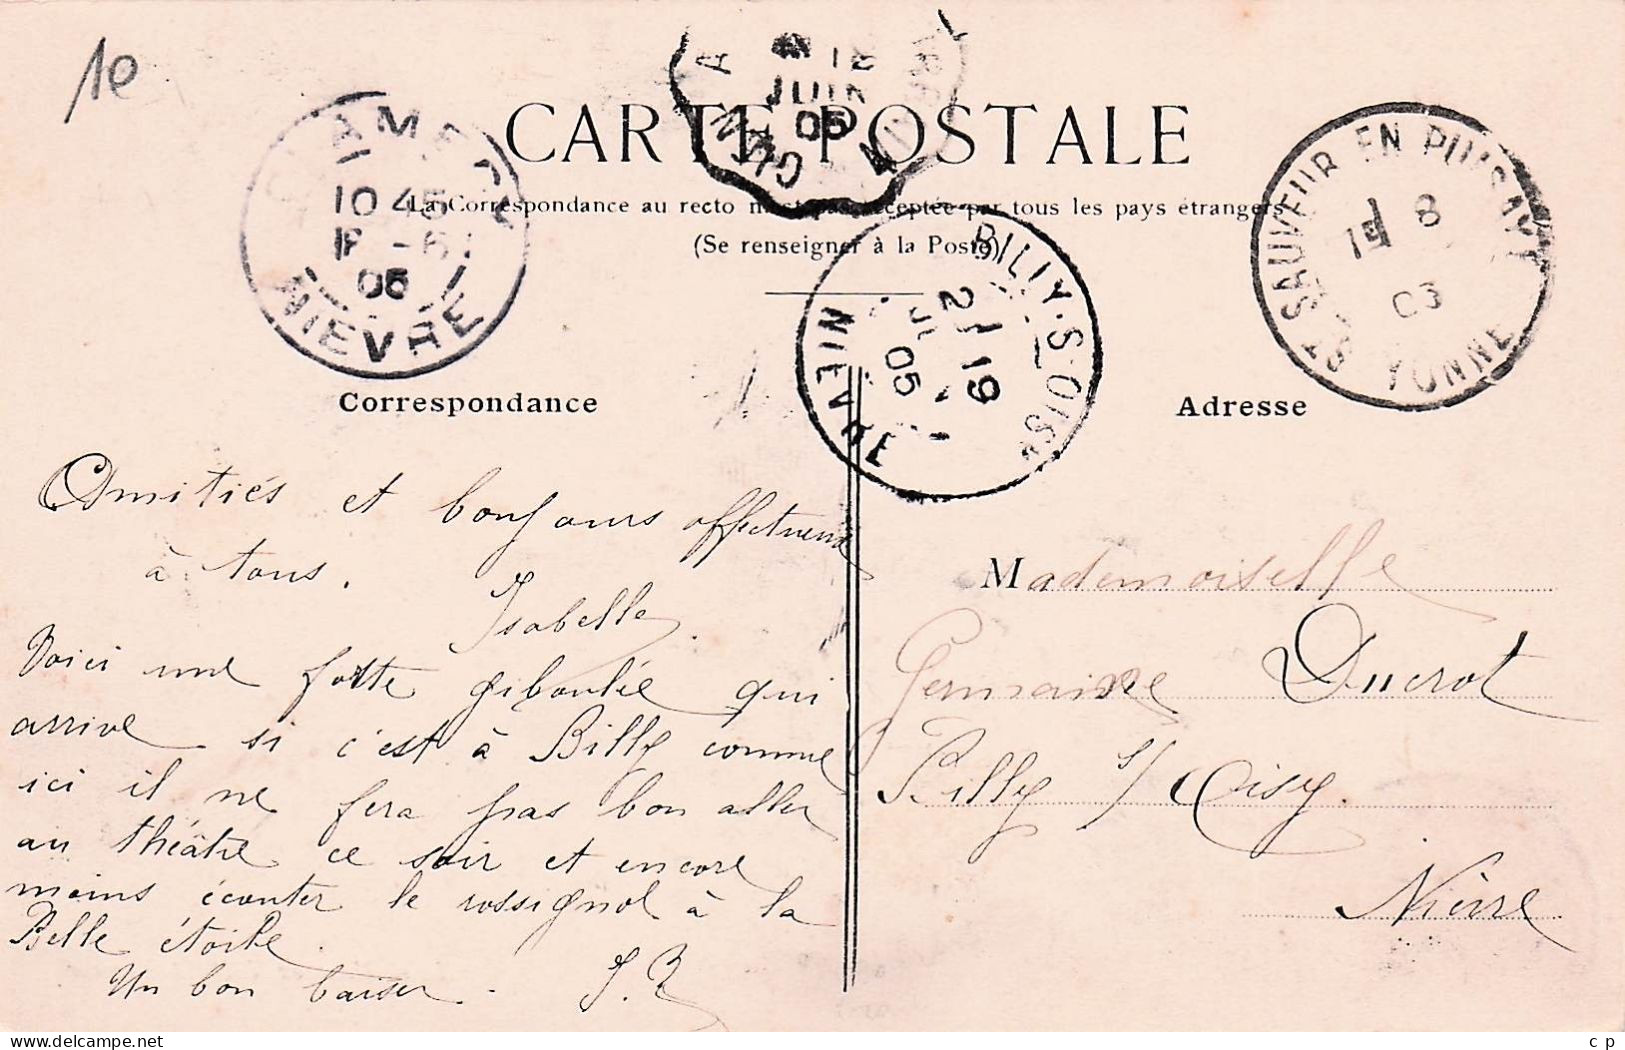 1e
CARTE POSTALE
La Correspondance au recto n'est pas acceptée par tous les pays étrangers
(Se renseigner à la Poste)
CLAMECY
10 45
18 - 6
05
NIEVRE
JUIN
05
BILLY-S-OISY
2 19
05
NIEVRE
ST SAUVEUR EN PUISAYE
YONNE
Correspondance
Amitiés et bonjours affectueux
à tous.
Isabelle.
Voici une forte giboulée qui
arrive si c'est à Billy comme
ici il ne fera pas bon aller
au théâtre ce soir et encore
moins écouter le rossignol à la
Belle étoile.
Un bon baiser. I. R
Adresse
Mademoiselle
Germaine Ducrot
Billy s/ Oisy.
Nièvre
c p